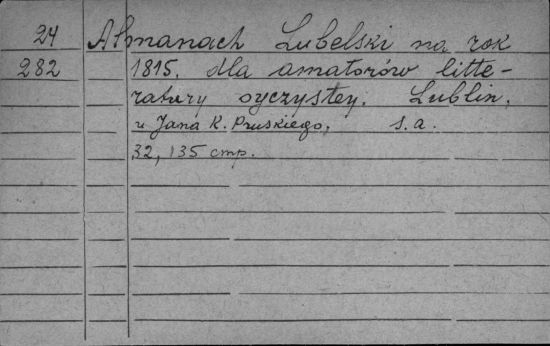 24 Almanach Lubelski na rok
282 1815. dla amatorów litte-
ratury oyczystey. Lublin,
u Jana K. Pruskiego, s.a.
32, 135 cmp.